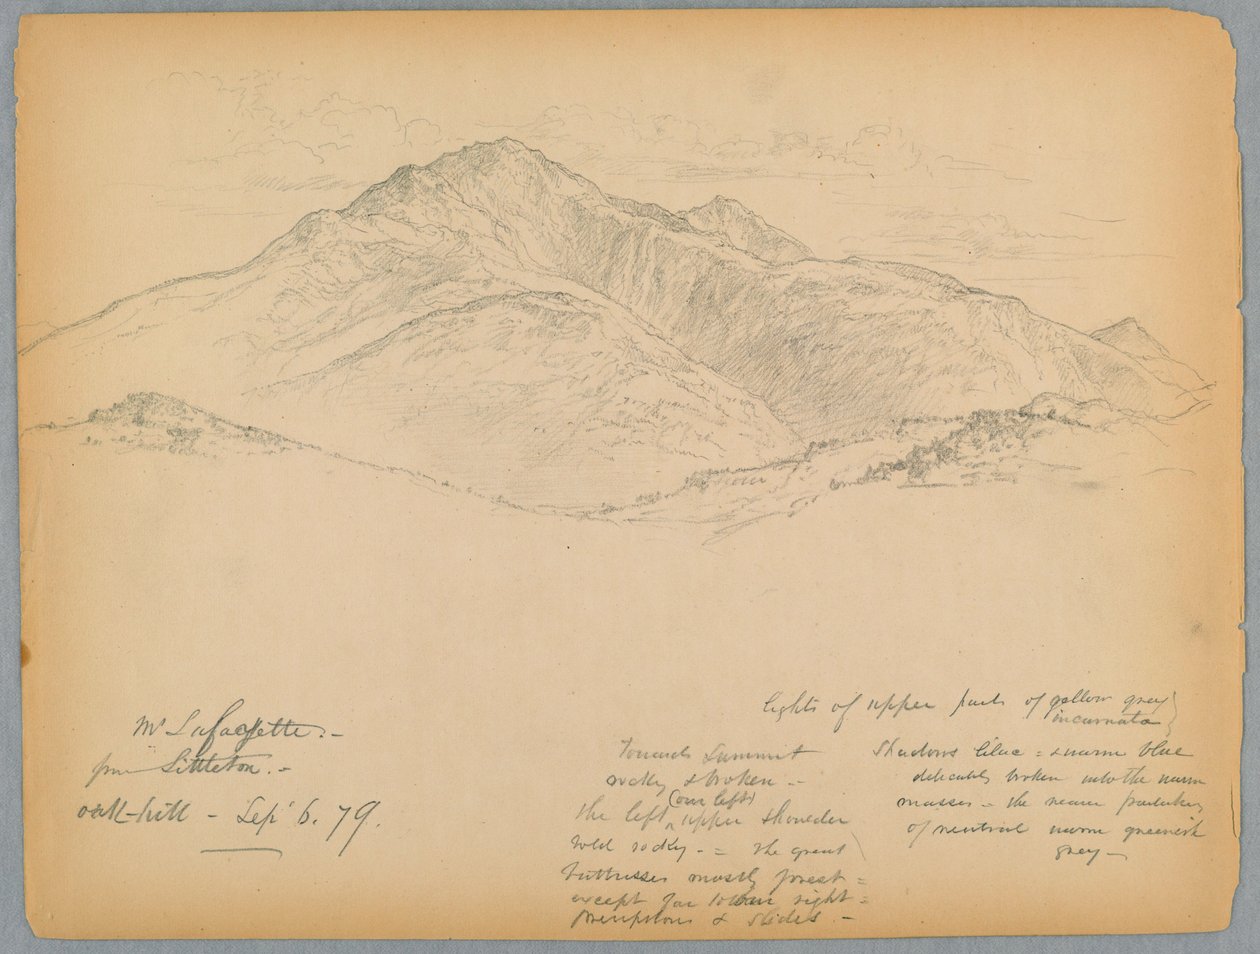 Mt Lafayette. -
from Littleton. -
oak-hill - Sep' 6. 79.
towards summit
rocky & broken -
(our left)
the left upper shoulder
bold rocky. - = the great
buttresses mostly forest =
except far toward right =
precipitous & slides. -
lights of upper parts of yellow grey
incarnata
Shadows lilac = & warm blue
delicately broken into the warm
masses - the nearer partakes
of neutral warm greenish
grey -